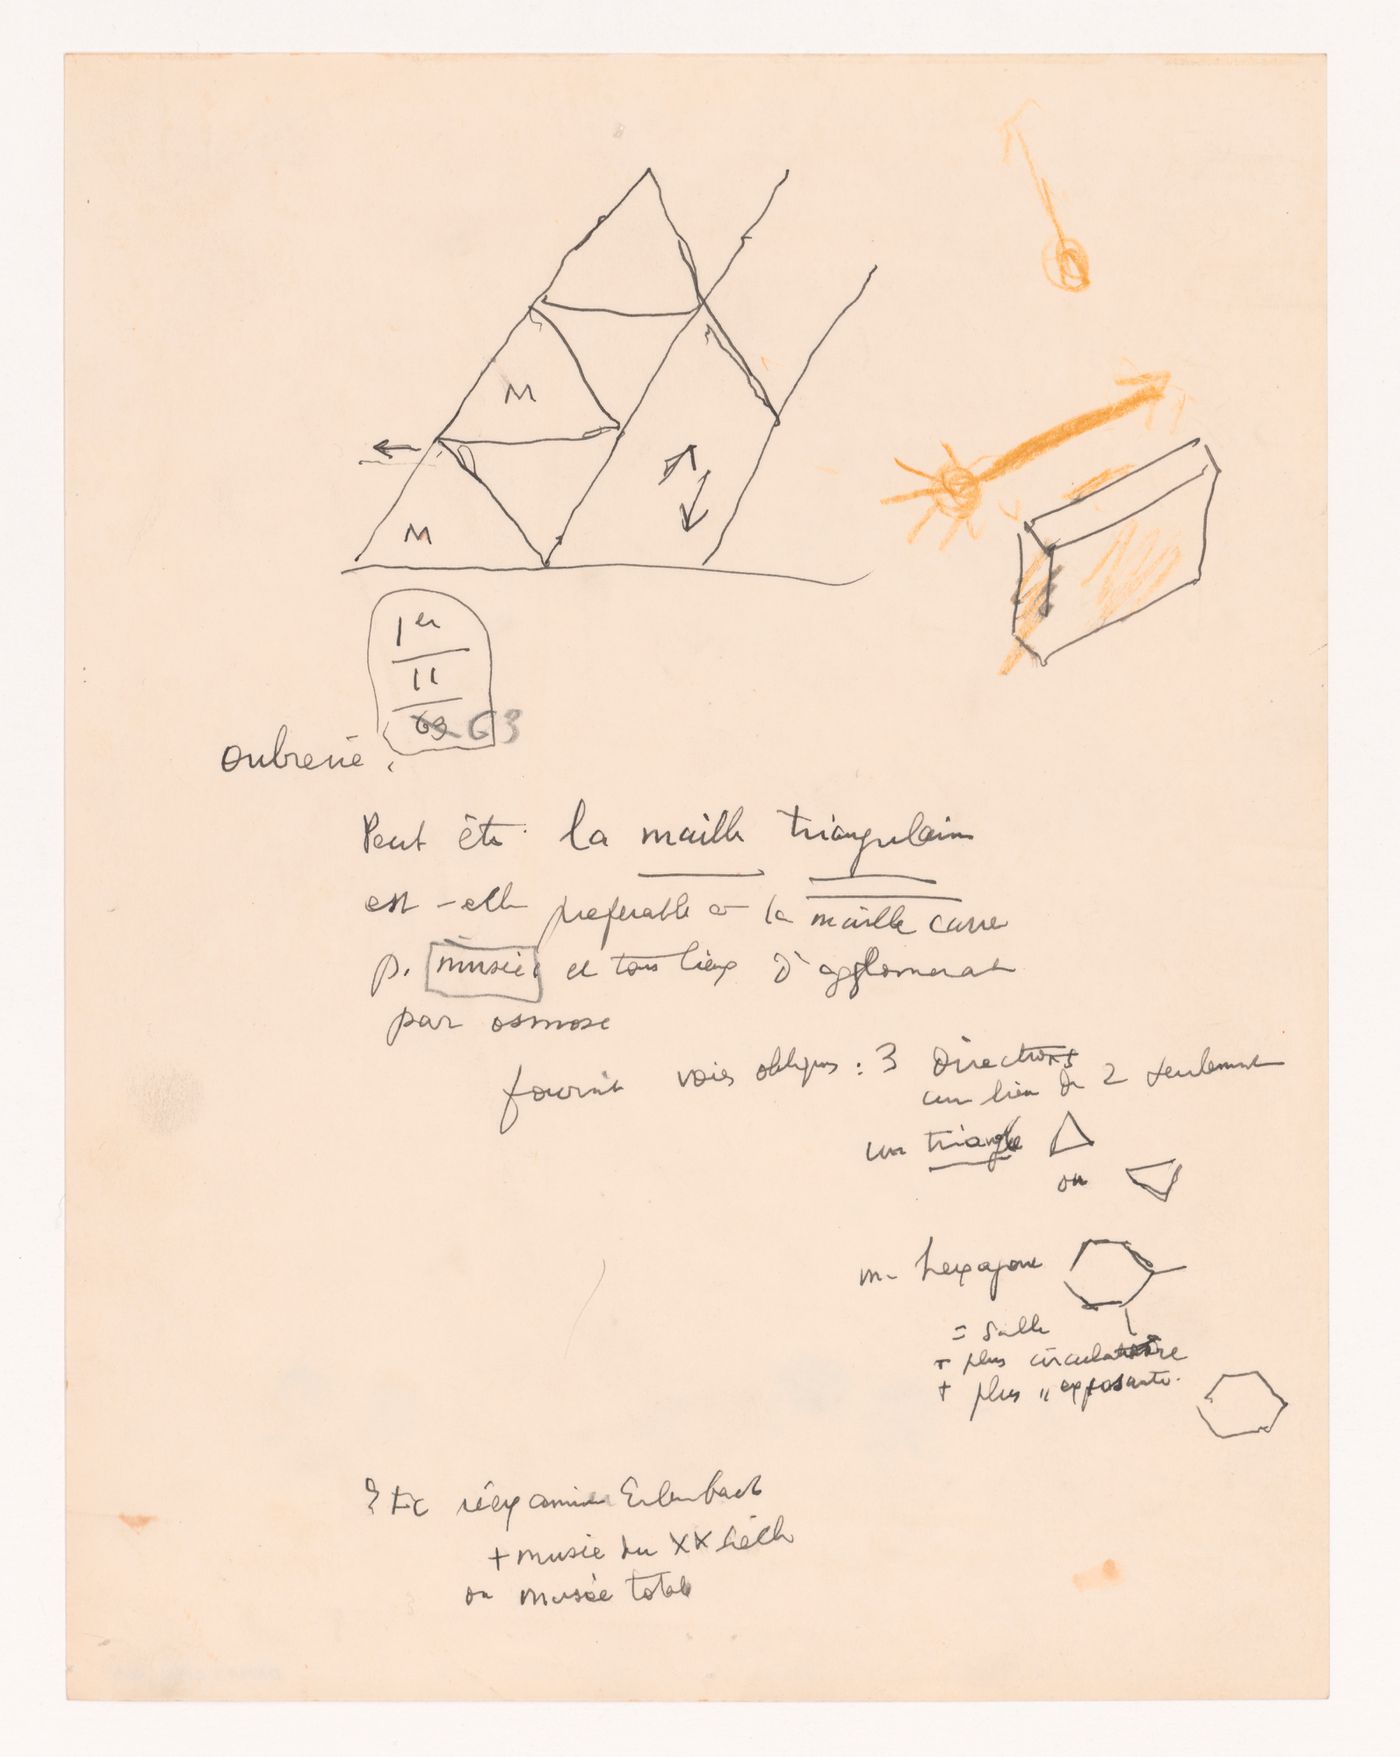 M
M
1er
11
63 63
Peut être la maille triangulaire
est-elle preferable a la maille carre
p. musée et tous lieux d'agglomerat
par osmose
fournit voies obliques : 3 directions
au lieu de 2 seulement
un triangle
ou
m- hexagone
= salle
+ plus circulatoire
+ plus " exposante.
? Etc réexaminer Erlenbach
+ musée du XX siècle
ou musée total